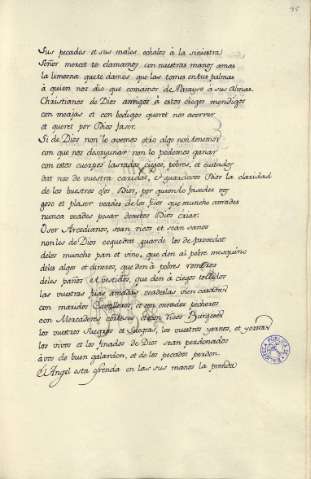 95
Sus pecados et sus males echelos à la siniestra
Señor merced te clamamos con nuestras manos amas
la limosna que te damos que las tomes en tus palmas
à quien nos diò que comamos de Parayso à sus almas
Christianos de Dios amigos à estos ciegos mendigos
con meajas et con bodigos queret nos acorrer
et queret por Dios facer.
Si de Dios non lo avemos otro algo non tenemos
con que nos desayunar non lo podemos ganar
con estos cuerpos lazrados ciegos, pobres, et cuitados
dat nos de vuestra caridat, et guardevos Dios la claridad
de los vuestros ojos Dios, por quien lo facedes
goso et placer veades de los fijos que mucho amades
nunca veades pesar devetos Dios criar.
O ser Arcedianos, sean ricos et sean sanos
non les dè Dios ceguedat guarde los de pobredat
deles mucho pan et vino, que den al pobre mesquino
deles algo et dineros, que den à pobres romeros
deles paños et vestidos, que den à ciegos tollidos
las vuestras fijas amadas veadeslas bien casadas
con maridos Cavalleros, et con onrados pecheros
con Mercaderes corteses et con ricos Burgeses
los vuestros Suegros et Suegras, los vuestros yernos, et yeernas
los vivos et los finados de Dios sean perdonados
à vos dè buen galardon, et de los pecados perdon.
el Angel esta ofrenda en las sus manos la prenda